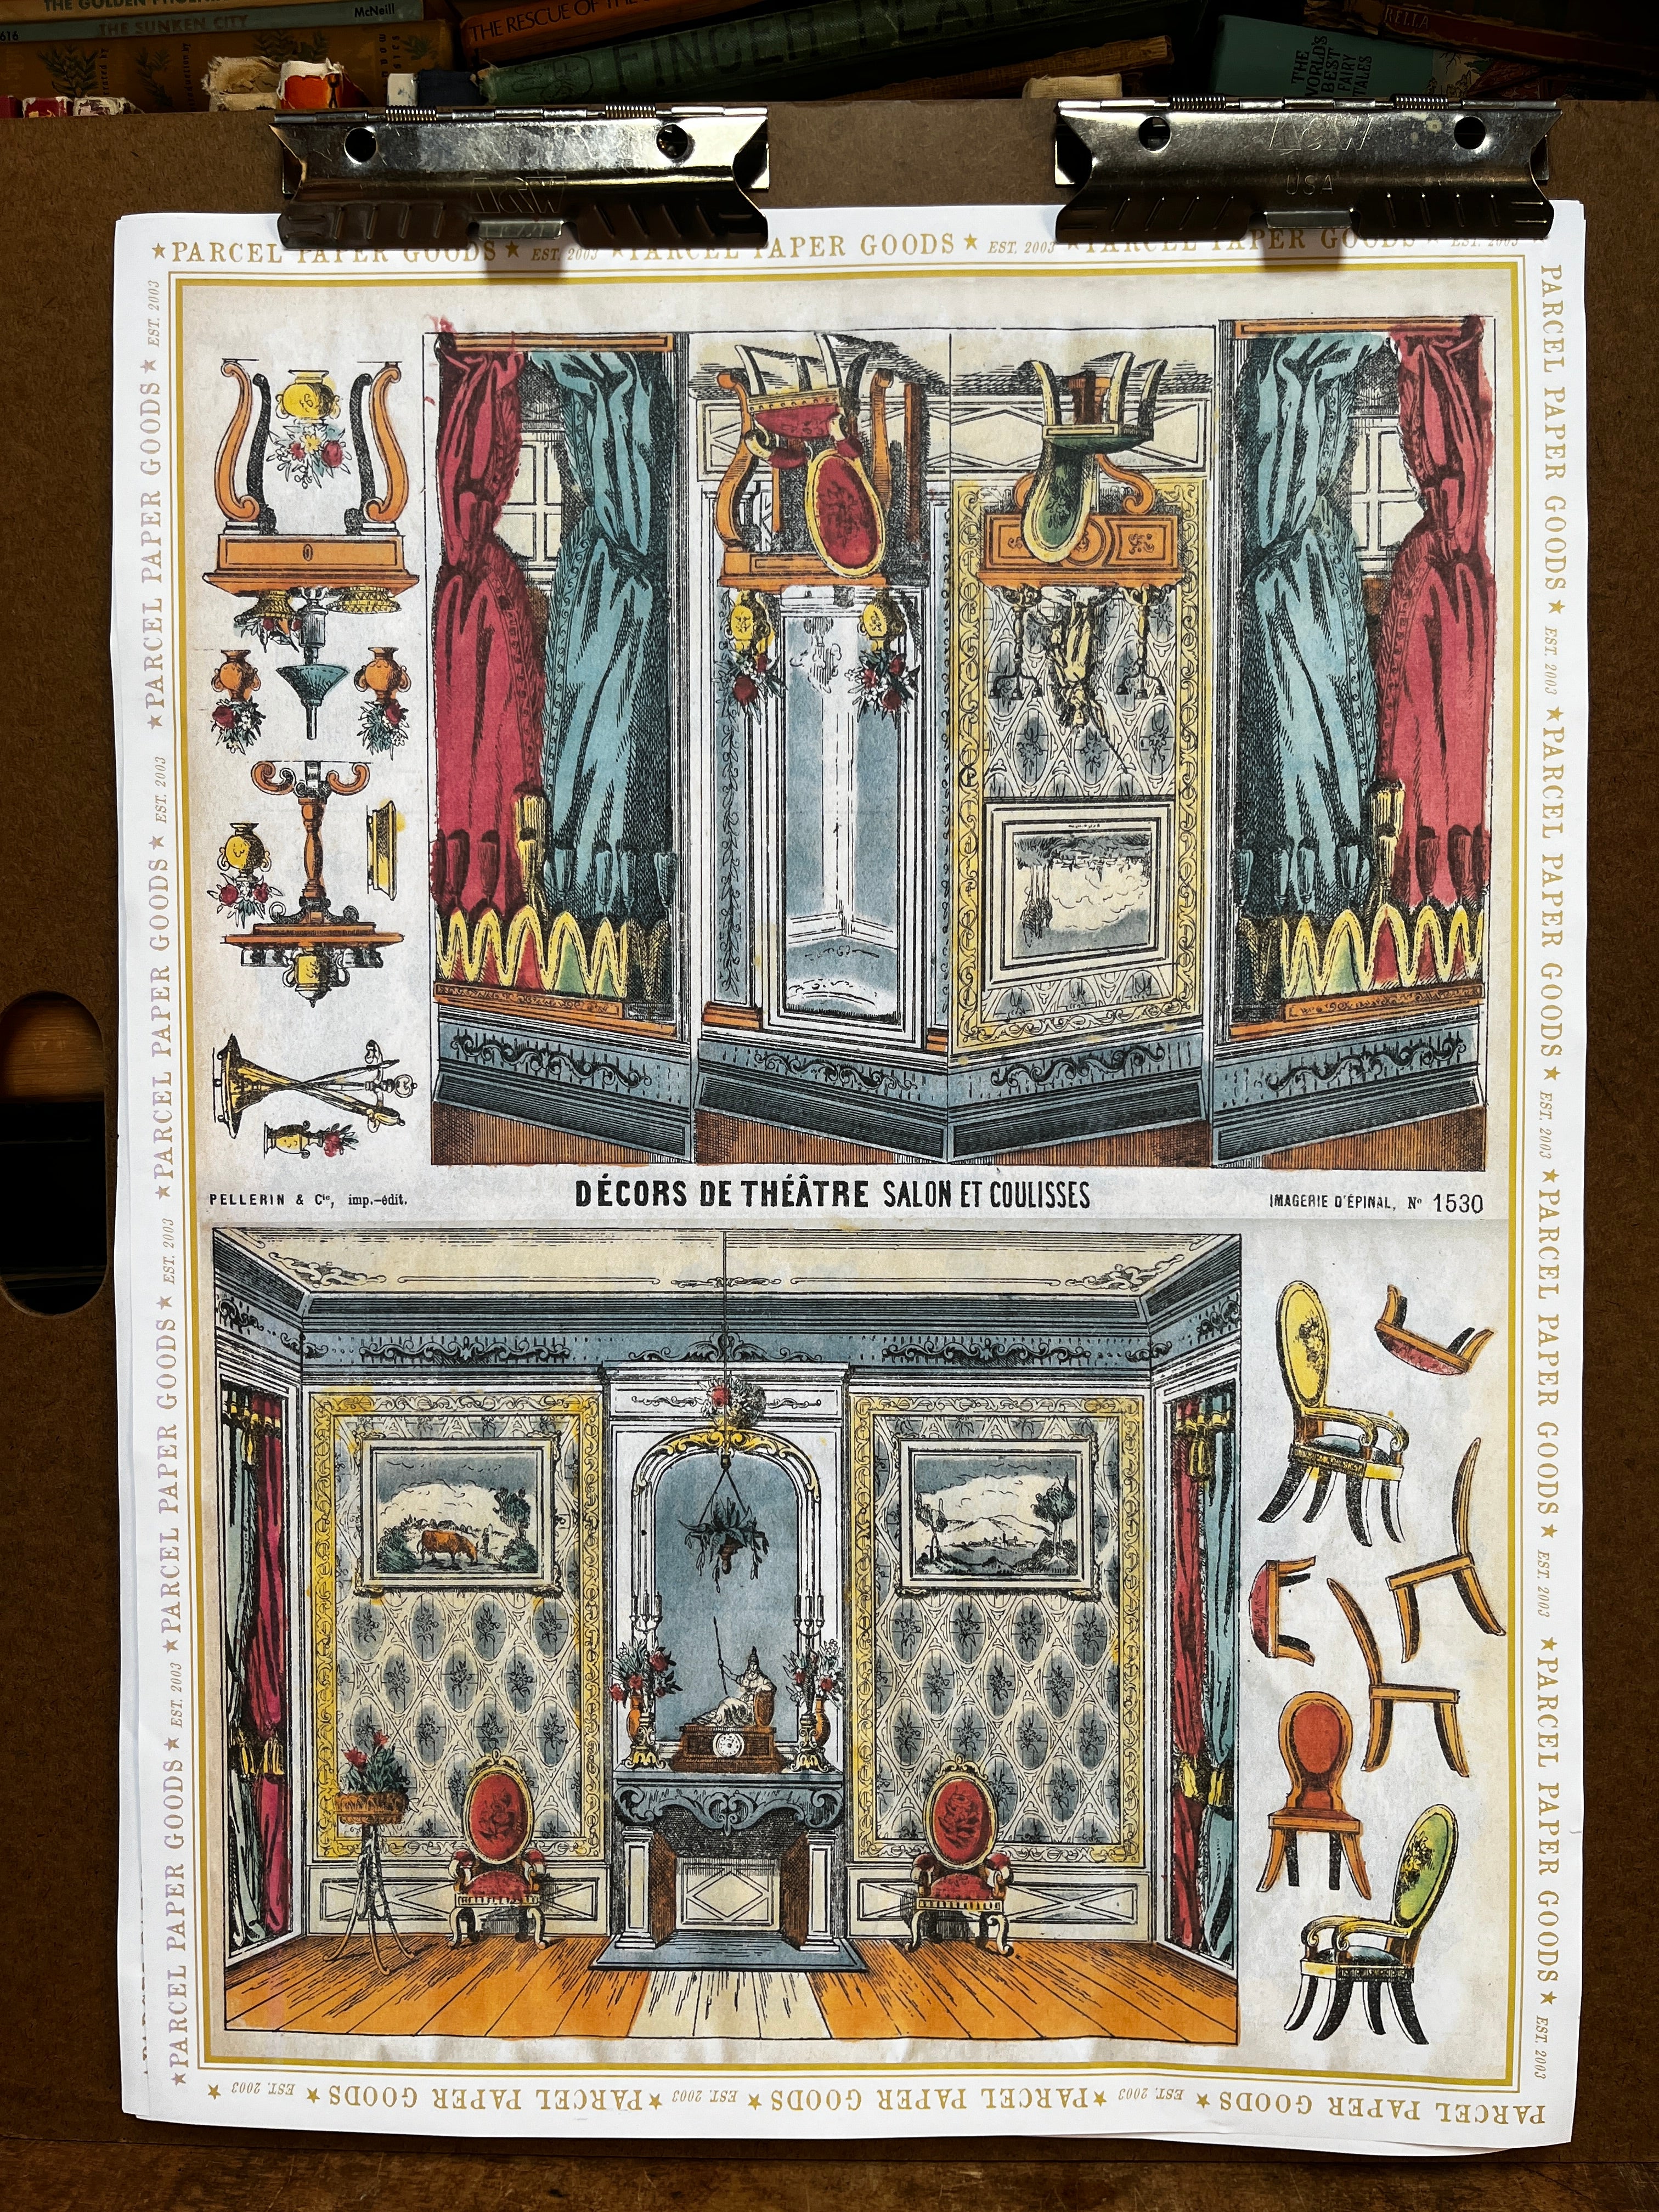 THE SUNKEN CITY
McNeill
616
THE RESCUE OF THE
THE WORLD'S BEST FAIRY TALES
USA
★ PARCEL PAPER GOODS ★ EST. 2003 ★ PARCEL PAPER GOODS ★ EST. 2003 ★ PARCEL PAPER GOODS ★ EST. 2003
PARCEL PAPER GOODS ★ EST. 2003 ★ PARCEL PAPER GOODS ★ EST. 2003 ★ PARCEL PAPER GOODS ★ EST. 2003 ★ PARCEL PAPER GOODS ★ EST. 2003
PELLERIN & Cie, imp.-édit.
DÉCORS DE THÉÂTRE SALON ET COULISSES
IMAGERIE D'ÉPINAL, No 1530
PARCEL PAPER GOODS ★ EST. 2003 ★ PARCEL PAPER GOODS ★ EST. 2003 ★ PARCEL PAPER GOODS ★ EST. 2003 ★
★ PARCEL PAPER GOODS ★ EST. 2003 ★ PARCEL PAPER GOODS ★ EST. 2003 ★ PARCEL PAPER GOODS ★ EST. 2003 ★ PARCEL PAPER GOODS ★ EST. 2003